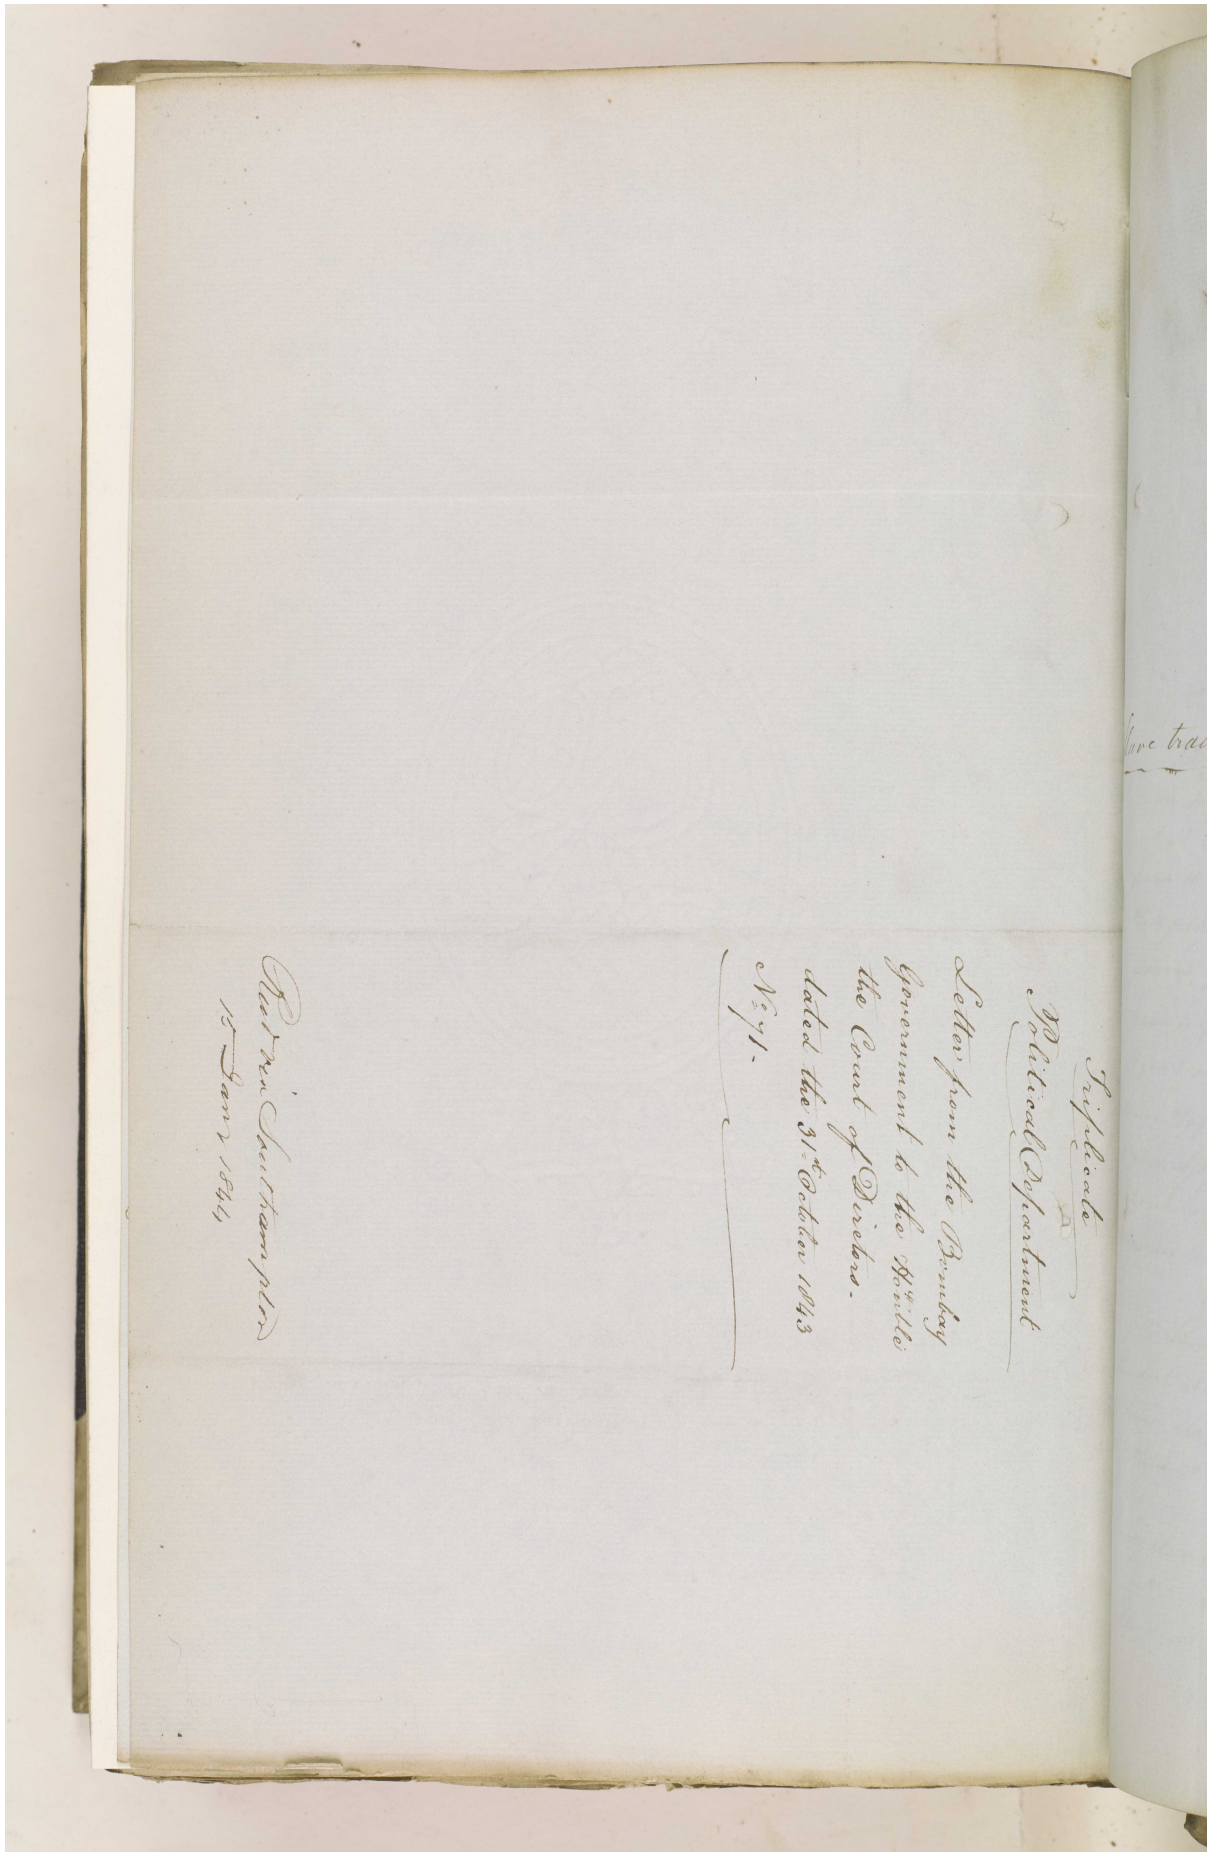 Triplicate
Political Department
Letter from the Bombay
Government to the Honble
the Court of Directors.
dated the 31st October 1843
No 71.
Recd via Southampton
1st Jany 1844